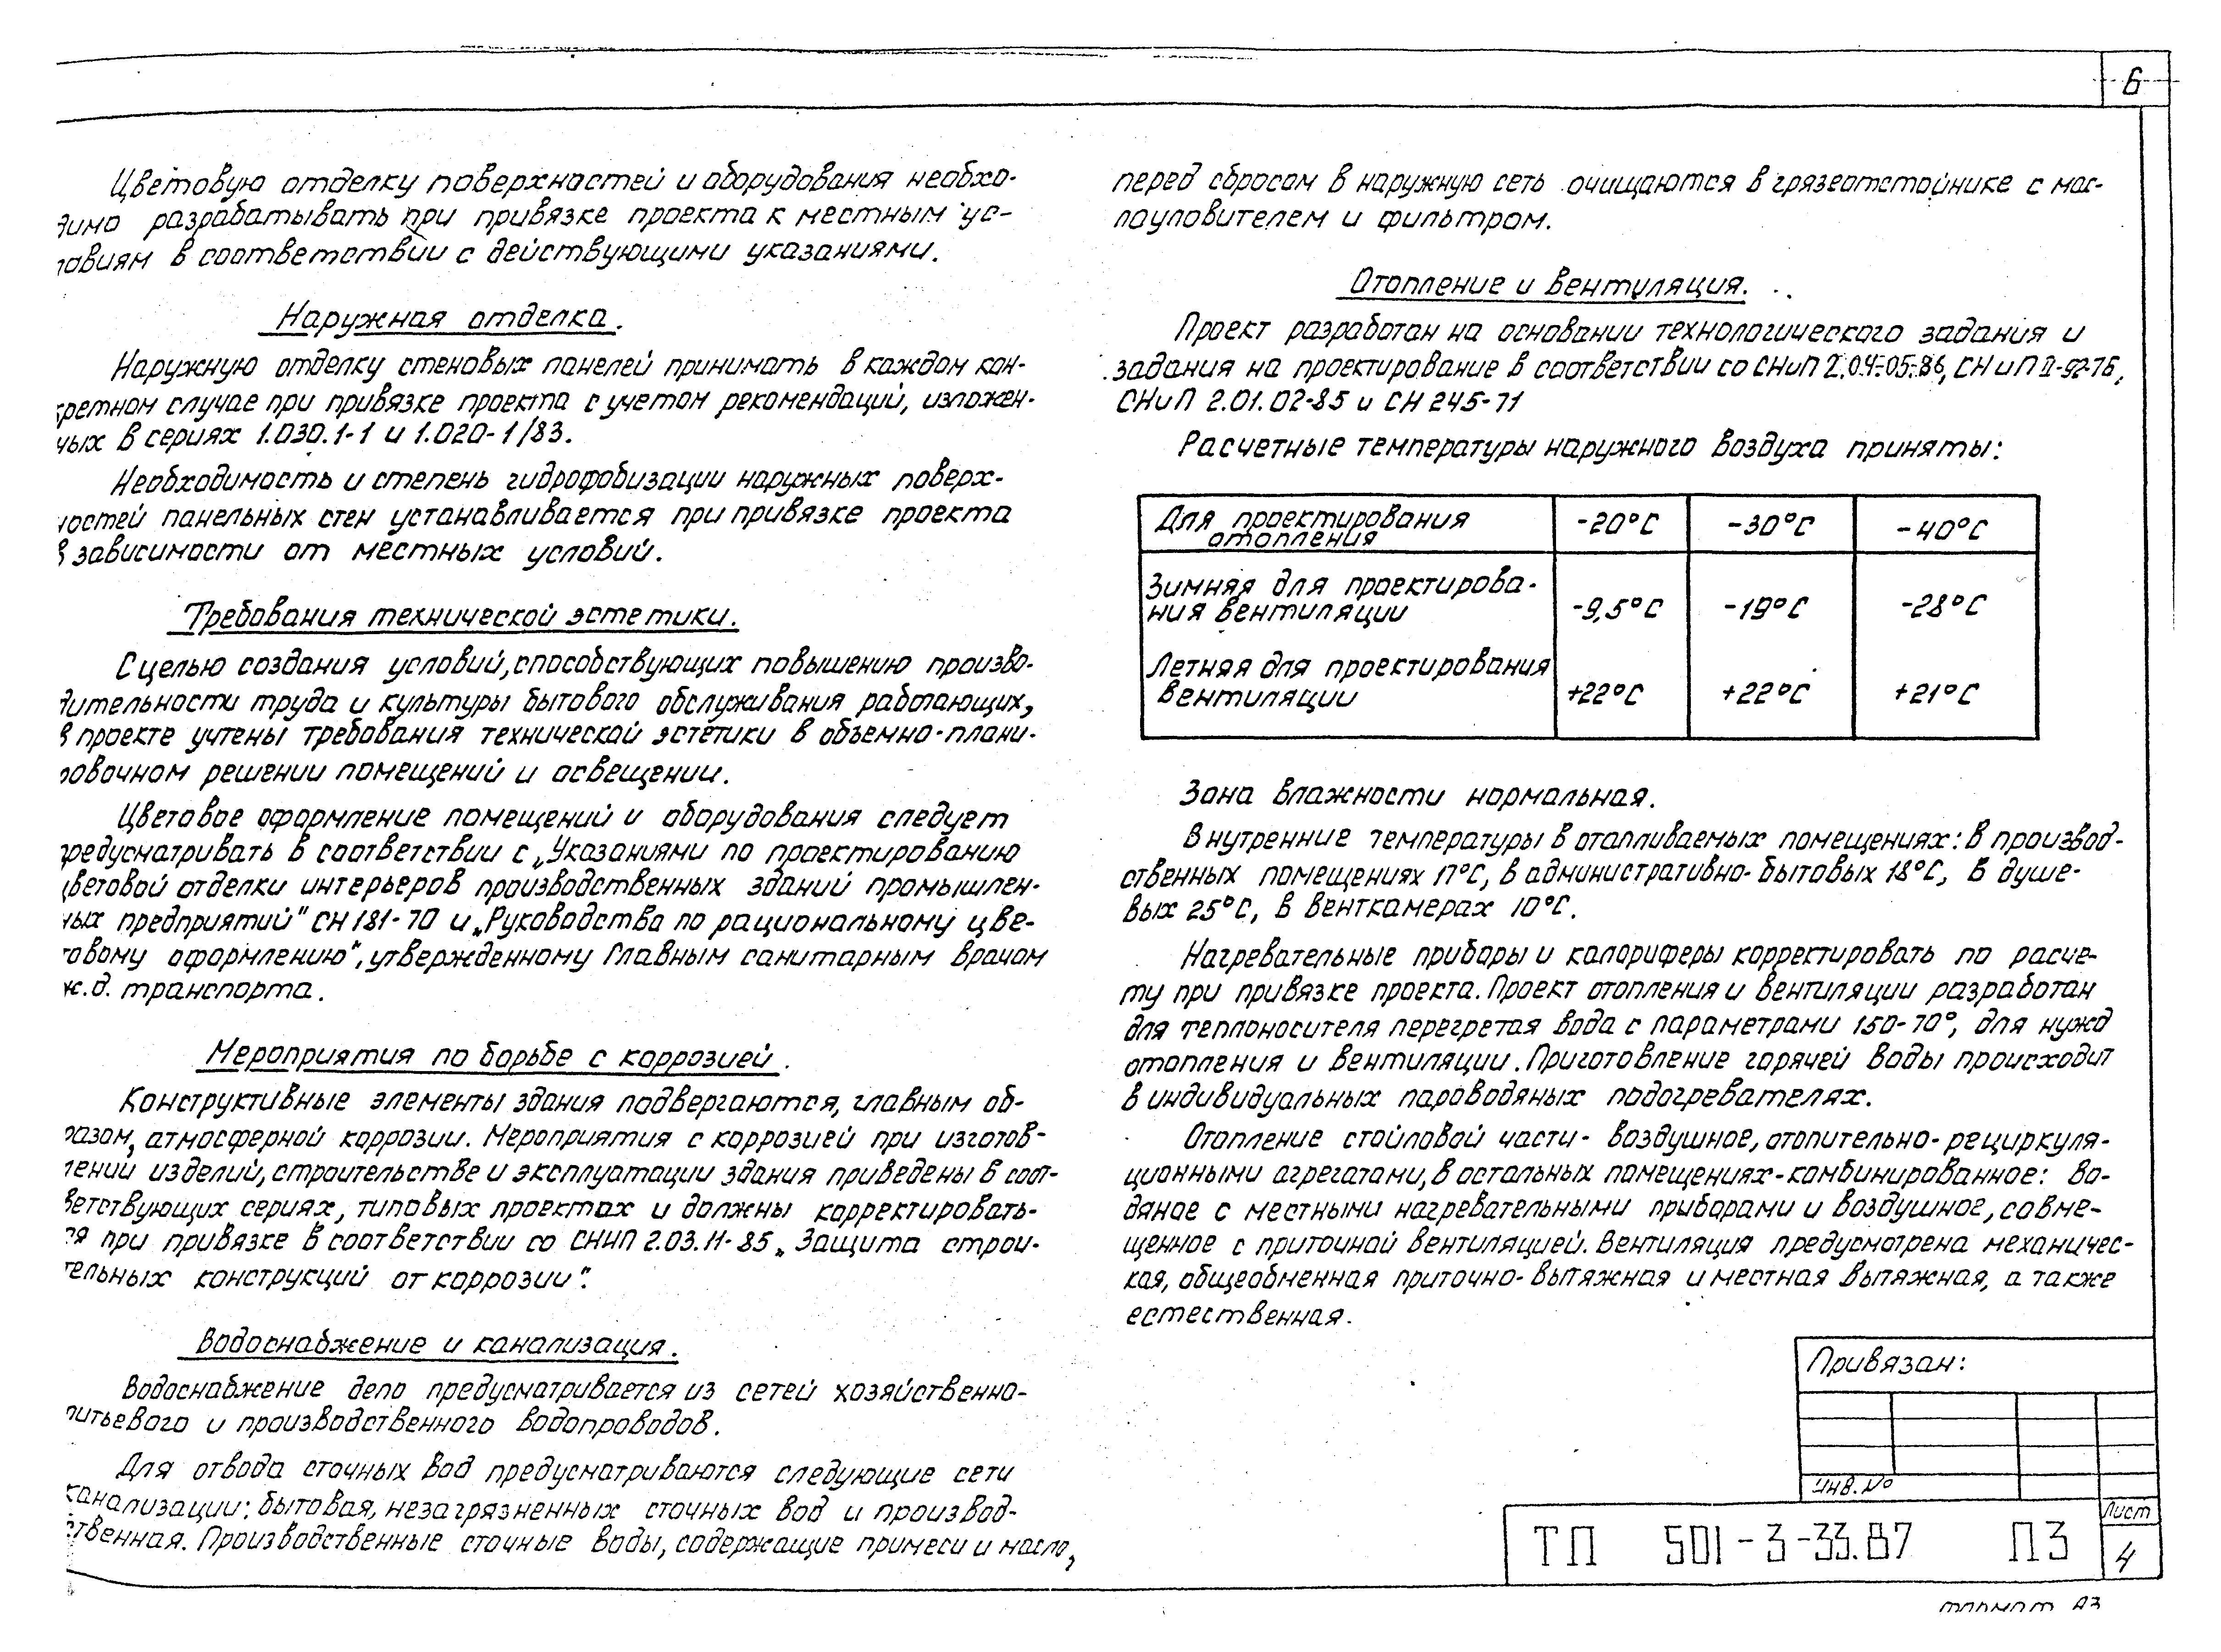 6
Цветовую отделку поверхностей и оборудования необхо-
димо разрабатывать при привязке проекта к местным ус-
ловиям в соответствии с действующими указаниями.
Наружная отделка.
Наружную отделку стеновых панелей принимать в каждом кон-
кретном случае при привязке проекта с учетом рекомендаций, изложен-
ных в сериях 1.030.1-1 и 1.020-1/83.
Необходимость и степень гидрофобизации наружных поверх-
ностей панельных стен устанавливается при привязке проекта
в зависимости от местных условий.
Требования технической эстетики.
С целью создания условий, способствующих повышению произво-
дительности труда и культуры бытового обслуживания работающих,
в проекте учтены требования технической эстетики в объемно-плани-
ровочном решении помещений и освещении.
Цветовое оформление помещений и оборудования следует
предусматривать в соответствии с „Указаниями по проектированию
цветовой отделки интерьеров производственных зданий промышлен-
ных предприятий" СН 181-70 и „Руководства по рациональному цве-
товому оформлению", утвержденному Главным санитарным врачом
ж.д. транспорта.
Мероприятия по борьбе с коррозией.
Конструктивные элементы здания подвергаются, главным об-
разом, атмосферной коррозии. Мероприятия с коррозией при изготов-
лении изделий, строительстве и эксплуатации здания приведены в соот-
ветствующих сериях, типовых проектах и должны корректировать-
ся при привязке в соответствии со СНиП 2.03.11-85 „Защита строи-
тельных конструкций от коррозии".
Водоснабжение и канализация.
Водоснабжение депо предусматривается из сетей хозяйственно-
питьевого и производственного водопроводов.
Для отвода сточных вод предусматриваются следующие сети
канализации: бытовая, незагрязненных сточных вод и производ-
ственная. Производственные сточные воды, содержащие примеси и масло,
перед сбросом в наружную сеть очищаются в грязеотстойнике с мас-
лоуловителем и фильтром.
Отопление и вентиляция.
Проект разработан на основании технологического задания и
задания на проектирование в соответствии со СНиП 2.04-05-86, СНиП II-92-76,
СНиП 2.01.02-85 и СН 245-71
Расчетные температуры наружного воздуха приняты:
Для проектирования отопления -20°С -30°С -40°С
Зимняя для проектирова-
ния вентиляции -9,5°С -19°С -28°С
Летняя для проектирования
вентиляции +22°С +22°С +21°С
Зона влажности нормальная.
Внутренние температуры в отапливаемых помещениях: в производ-
ственных помещениях 17°С, в административно-бытовых 18°С, в душе-
вых 25°С, в венткамерах 10°С.
Нагревательные приборы и калориферы корректировать по расче-
ту при привязке проекта. Проект отопления и вентиляции разработан
для теплоносителя перегретая вода с параметрами 150-70°, для нужд
отопления и вентиляции. Приготовление горячей воды происходит
в индивидуальных пароводяных подогревателях.
Отопление стойловой части - воздушное, отопительно-рециркуля-
ционными агрегатами, в остальных помещениях-комбинированное: во-
дяное с местными нагревательными приборами и воздушное, совме-
щенное с приточной вентиляцией. Вентиляция предусмотрена механичес-
кая, общеобменная приточно-вытяжная и местная вытяжная, а также
естественная.
Привязан:
Инв.№
ТП 501-3-33.87 ПЗ
Лист
4
формат А3